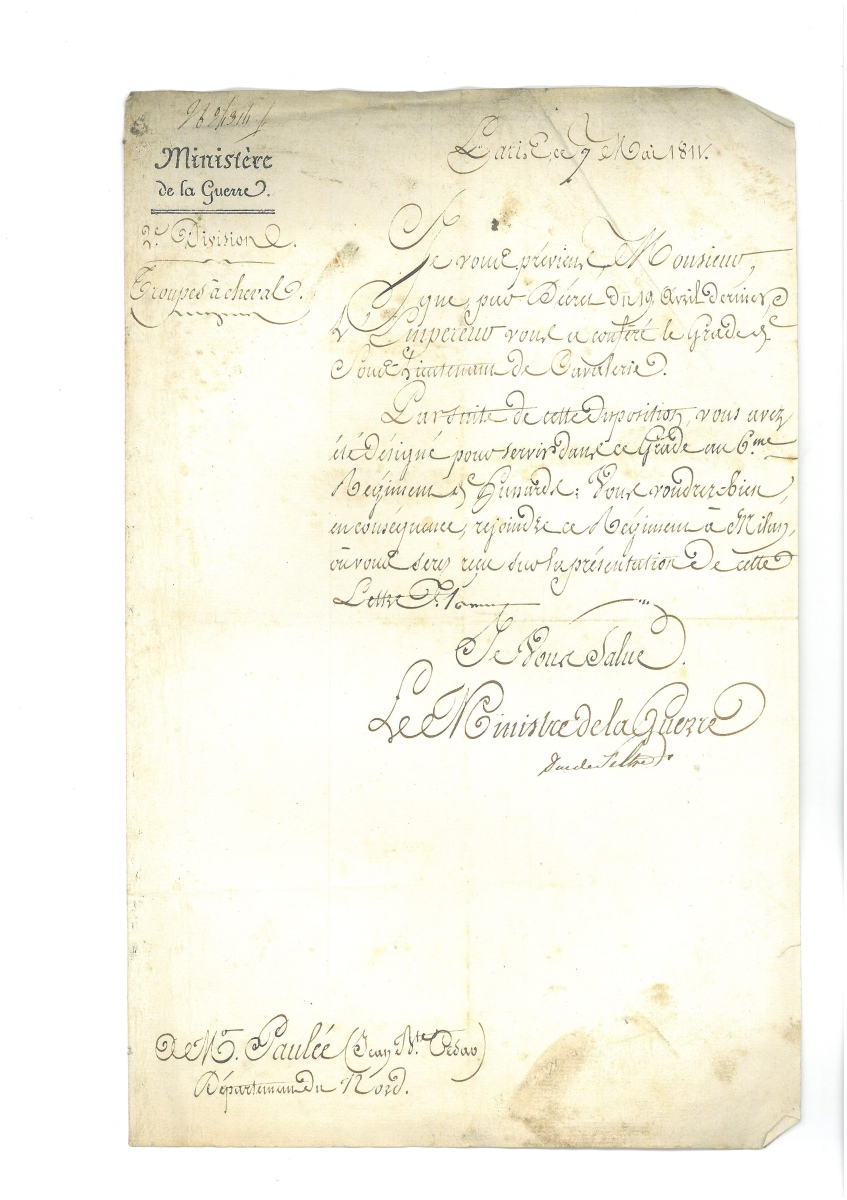 Ministère
de la Guerre.
2e. Division.
Troupes à cheval.
Paris, ce 9 Mai 1811.
Je vous préviens, Monsieur,
que, par Décret du 19 Avril dernier,
L'Empereur vous a conféré le Grade de
Sous-Lieutenant de Cavalerie.
Par suite de cette disposition, vous avez
été désigné pour servir dans ce Grade au 6.me
Régiment de Hussards; Vous voudrez bien,
en conséquence, rejoindre ce Régiment à Milan,
où vous serez reçu sur la présentation de cette
Lettre
Je Vous Salue.
Le Ministre de la Guerre
Duc de Feltre
Mr. Paulée (Jean Bte.
Département du Nord.